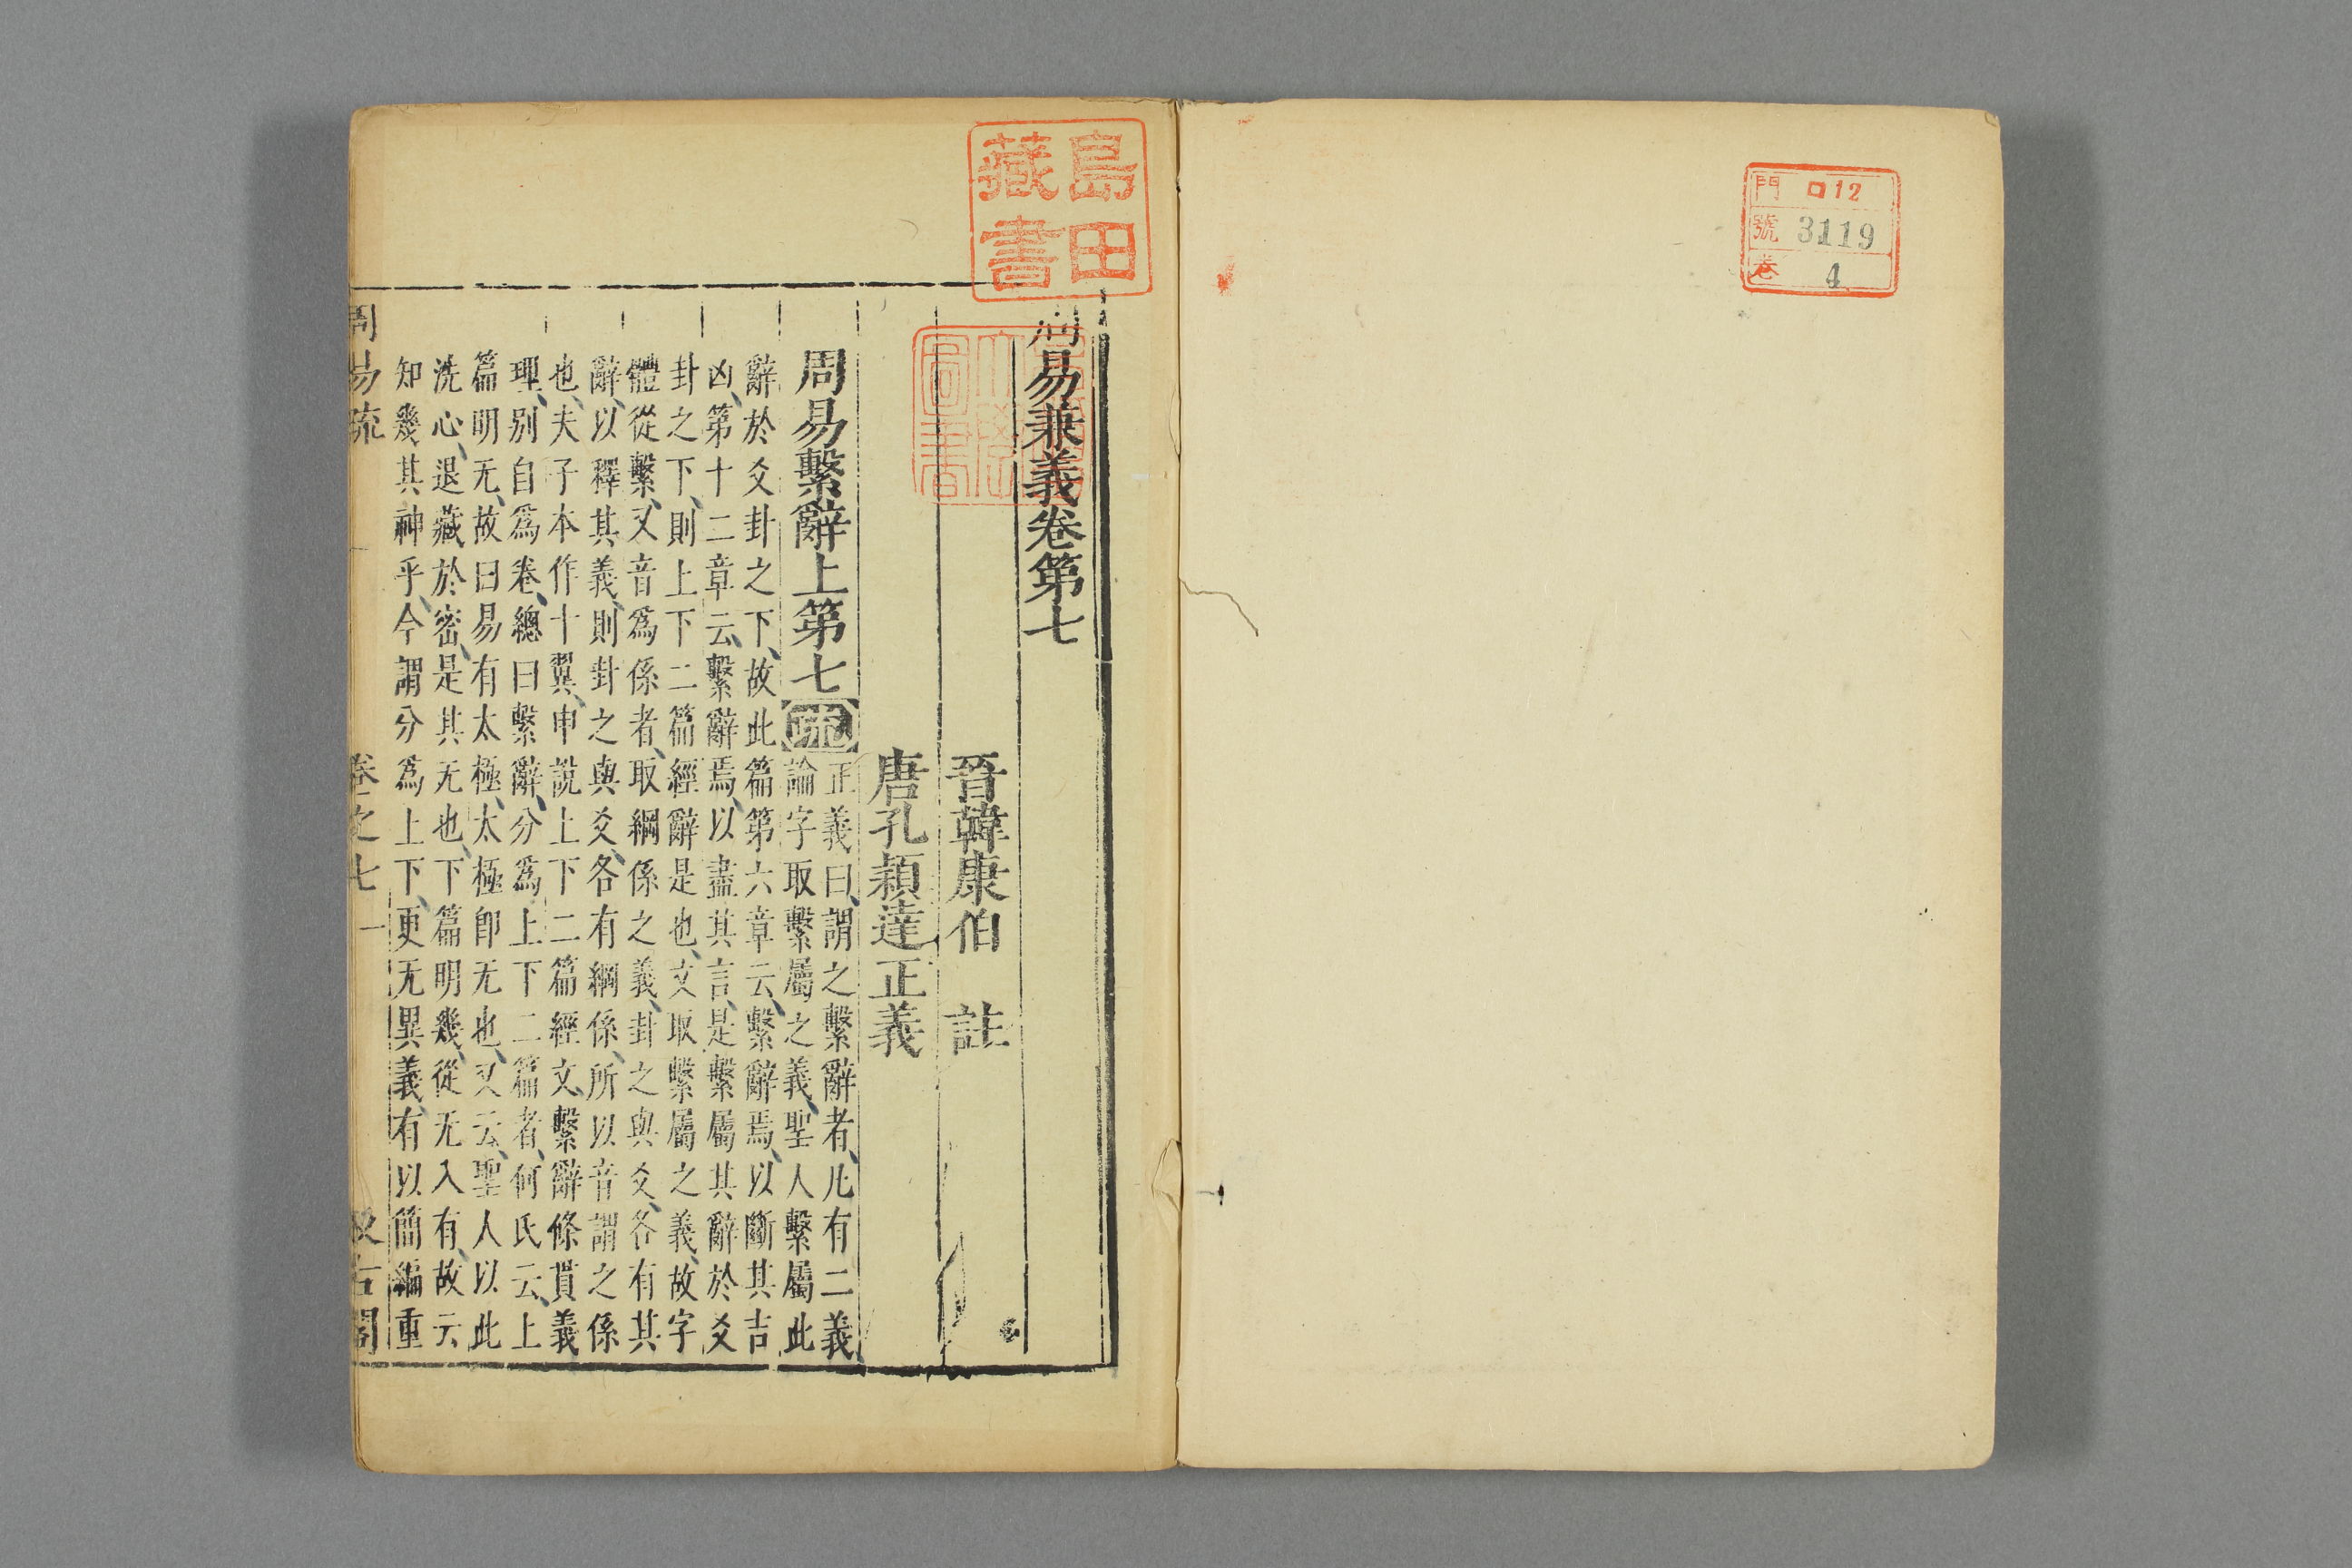 門 口12
號 3119
卷 4
島田
藏書
周易兼義卷第七
晉韓康伯 註
唐孔穎達正義
周易繫辭上第七疏
正義曰謂之繫辭者凡有二義
論字取繫屬之義聖人繫屬此
辭於爻卦之下故此篇第六章云繫辭焉以斷其吉
凶第十二章云繫辭焉以盡其言是繫屬其辭於爻
卦之下則上下二篇經辭是也文取繫屬之義故字
體從繫又音爲係者取綱係之義卦之與爻各有其
辭以釋其義則卦之與爻各有綱係所以音謂之係
也夫子本作十翼申說上下二篇經文繫辭條貫義
理別自爲卷總曰繫辭分爲上下二篇者何氏云上
篇明无故曰易有太極太極卽无也又云聖人以此
洗心退藏於密是其无也下篇明幾從无入有故云
知幾其神乎今謂分爲上下更无異義有以簡編重
周易疏 卷之七 一 汲古閣